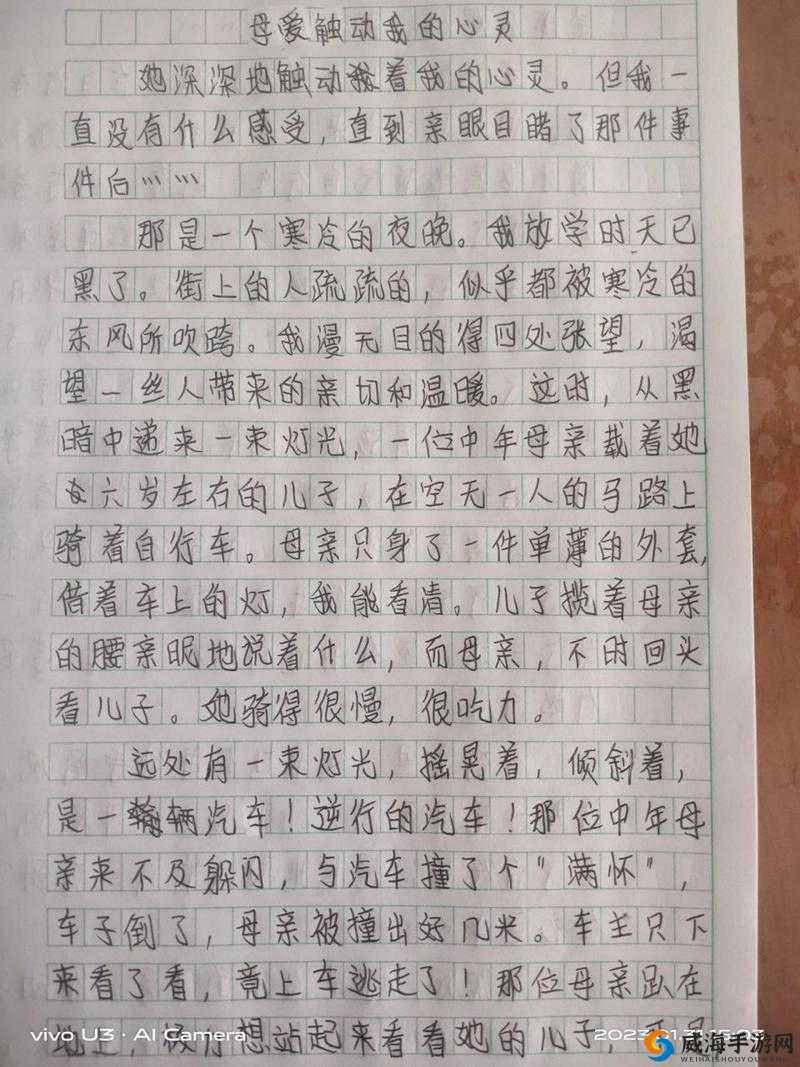 母爱触动我的心灵
她深深地触动着我的心灵。但我一
直没有什么感受，直到亲眼目睹了那件事
件后……
那是一个寒冷的夜晚。我放学时天已
黑了。街上的人疏疏的，似乎都被寒冷的
东风所吹跨。我漫无目的得四处张望，渴
望一丝人带来的亲切和温暖。这时，从黑
暗中递来一束灯光，一位中年母亲载着她
六岁左右的儿子，在空无一人的马路上
骑着自行车。母亲只身了一件单薄的外套，
借着车上的灯，我能看清。儿子揽着母亲
的腰亲昵地说着什么，而母亲，不时回头
看儿子。她骑得很慢，很吃力。
远处有一束灯光，摇晃着，倾斜着，
是一辆汽车！逆行的汽车！那位中年母
亲来不及躲闪，与汽车撞了个"满怀"，
车子倒了，母亲被撞出好几米。车主只下
来看了看，竟上车逃走了！那位母亲趴在
地上，想站起来看看她的儿子，
vivo U3 · AI Camera
2023
威海手游网
WEIHAISHOUYOUWANG